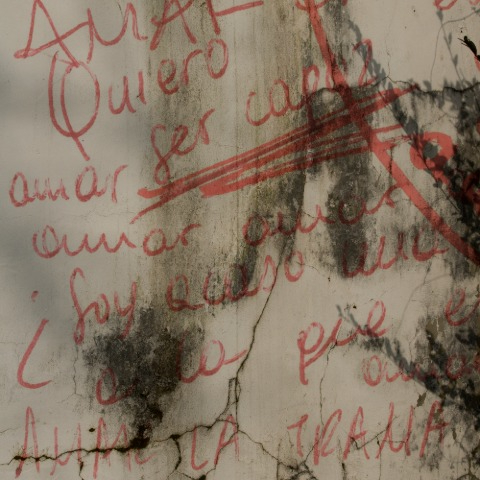 AMAR
Quiero
ser capaz
amar
amar amar
¿Soy acaso un
a la que
AMAR LA TRAMA